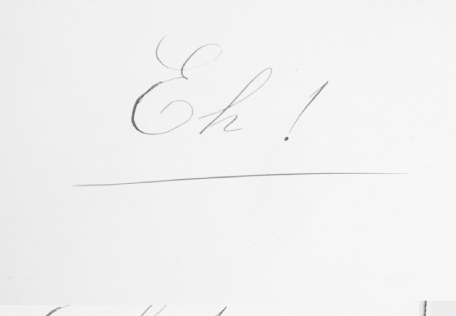 Eh !